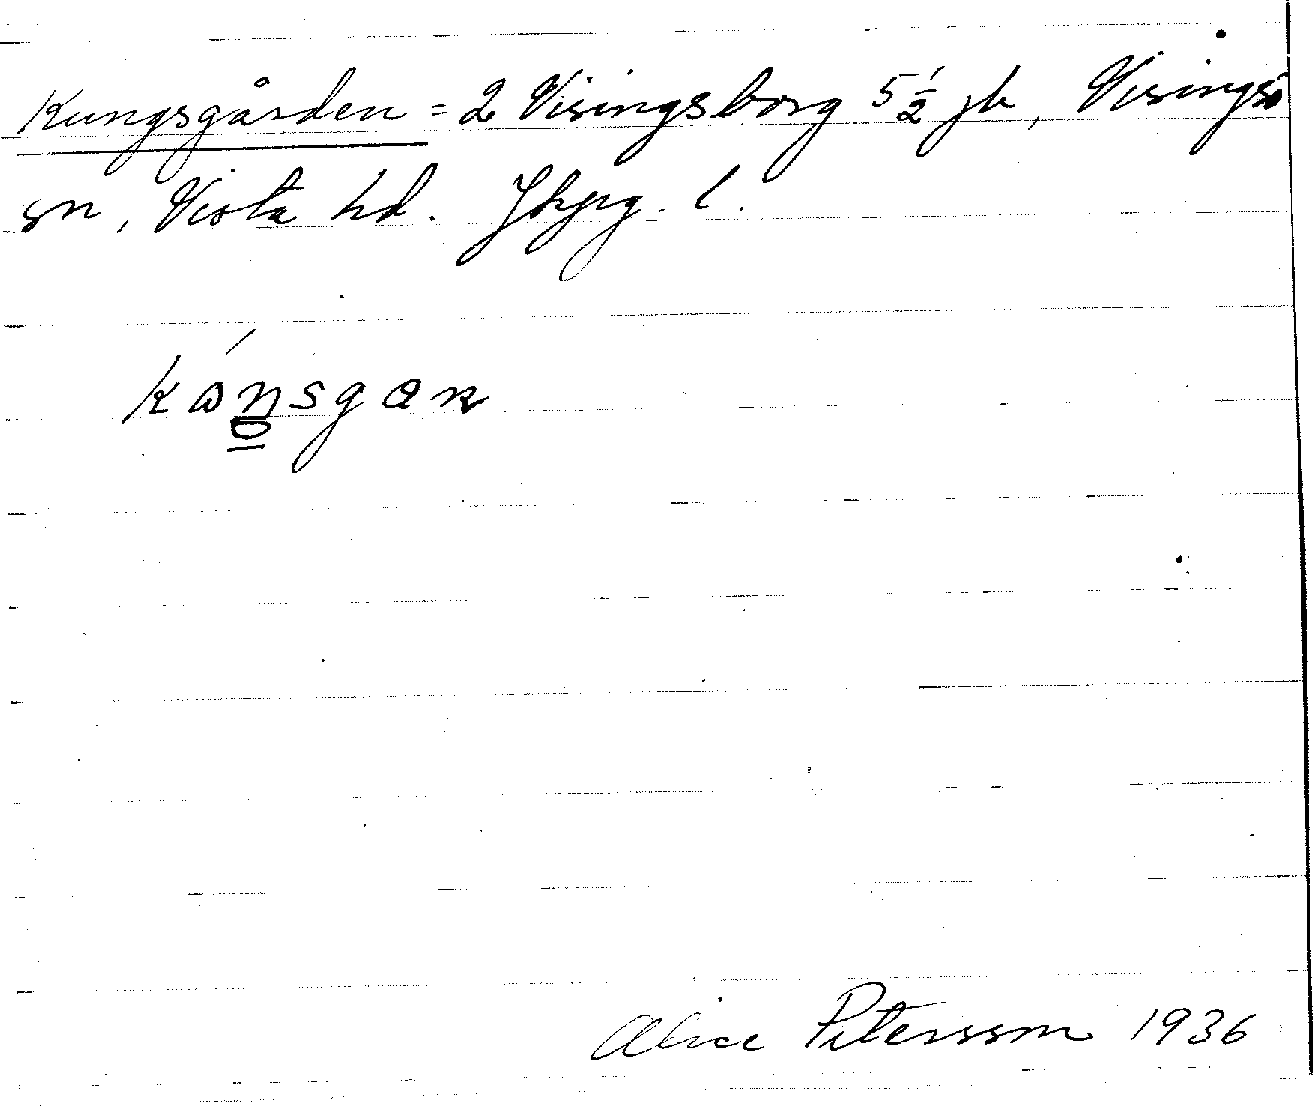 Kungsgården = 2 Visingsborg 5 1/2 jb, Visingsö
sn, Vista hd. Jkpg. l.
Alice Petersson 1936